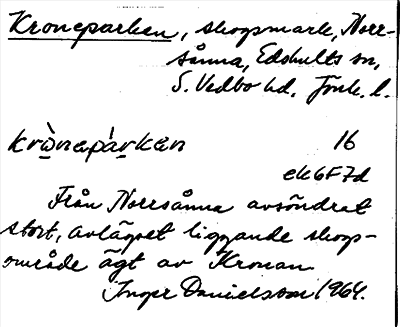 Kroneparken, skogsmark, Norr-
sånna, Edshults sn,
S. Vedbo hd, Jönk. l.
krò̠nepá̠rken 16
ek6F7d
Från Norrsånna avsöndrat
stort, avlägset liggande skogs-
område ägt av Kronan
Inger Danielsson 1964.